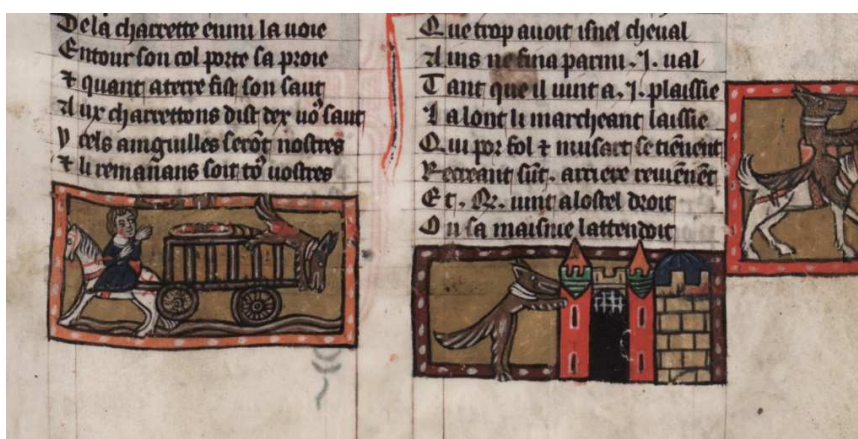 De la charrette enmi la uoie
Entour son col porte sa proie
⁊ quant a terre fist son saut
Aux charrettons dist dex uo᷒ saut
cels amguilles serōt nostres
⁊ li remanans soit to᷒ uostres
Que trop auoit isnel cheual
Ains ne fina parmi .i. ual
Tant que il uint a .i. plaissie
La lont li marcheant laissie
Qui por fol ⁊ musart se tienent
Recreant sūt. arriere reuienēt
Et .R. uint a lostel droit
Ou sa maisnie lattendoit